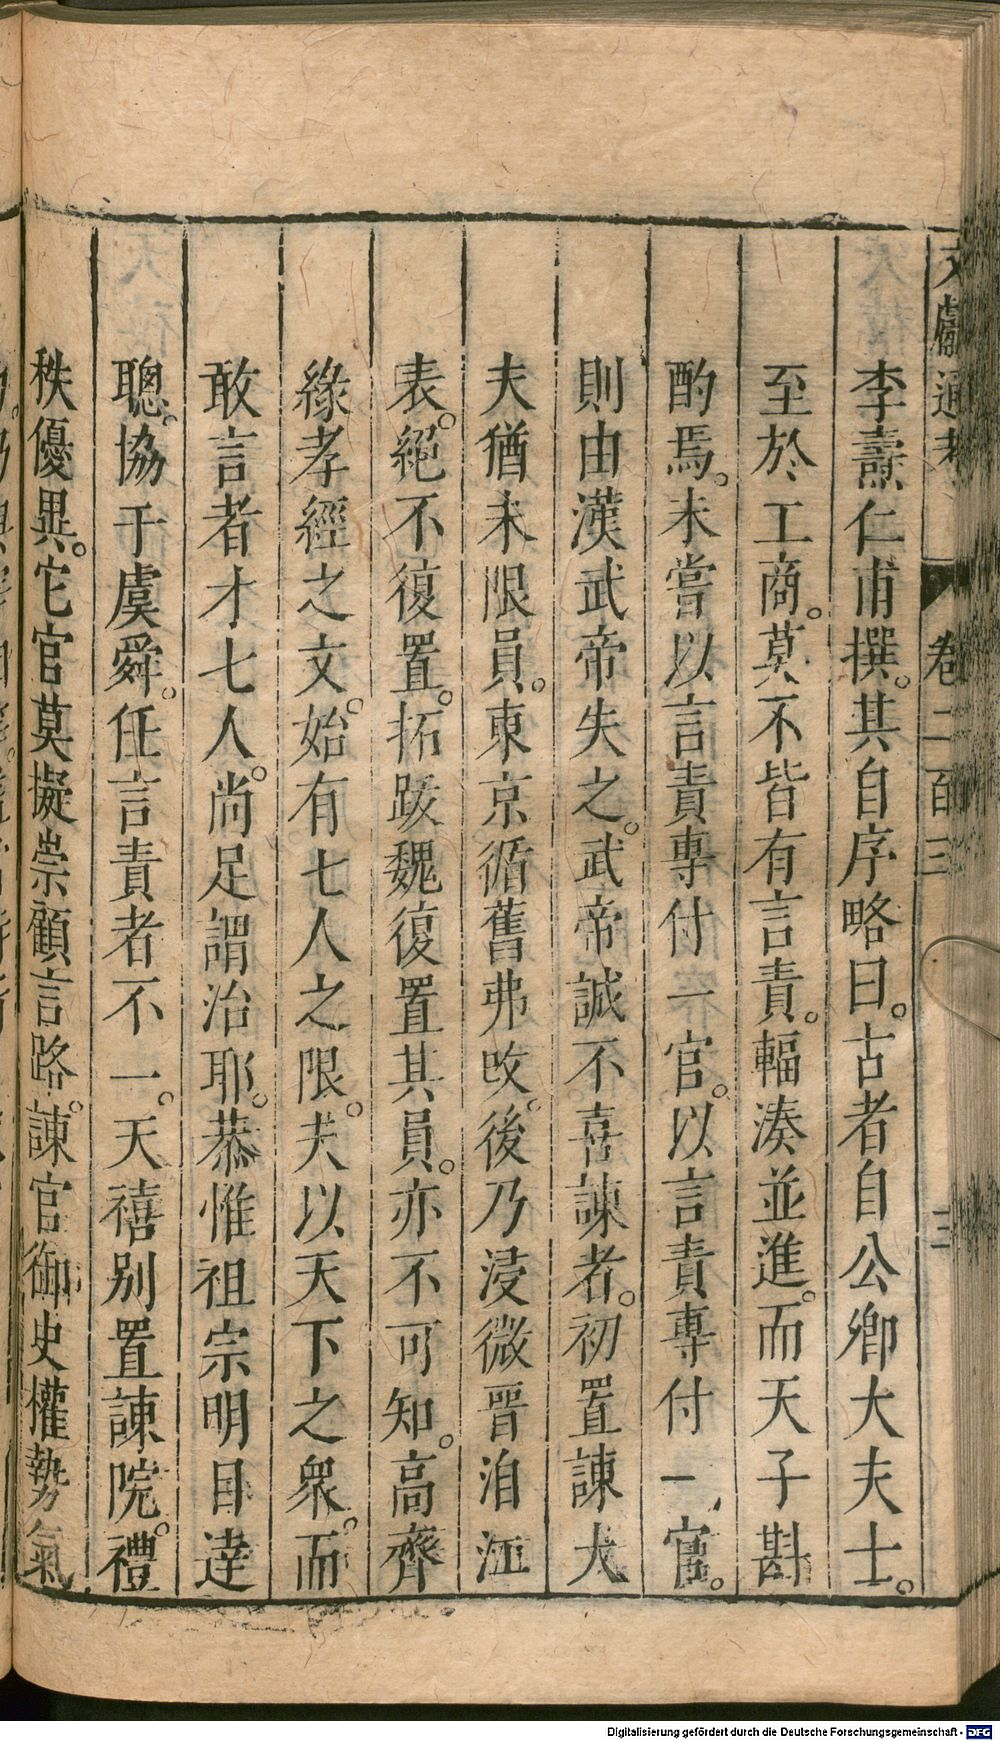 文獻通考 卷二百三 三
李燾仁甫撰。其自序略曰。古者自公卿大夫士。
至於工商。莫不皆有言責。輻湊並進。而天子斟
酌焉。未嘗以言責專付一官。以言責專付一官。
則由漢武帝失之。武帝誠不喜諫者。初置諫大
夫猶未限員。東京循舊弗改。後乃浸微晉洎江
表。絕不復置。拓跋魏復置其員。亦不可知。高齊
緣孝經之文。始有七人之限。夫以天下之衆。而
敢言者才七人。尚足謂治耶。恭惟祖宗明目達
聰。協于虞舜。任言責者不一。天禧別置諫院。禮
秩優異。它官莫擬崇顧言路。諫官御史權勢氣
Digitalisierung gefördert durch die Deutsche Forschungsgemeinschaft - DFG